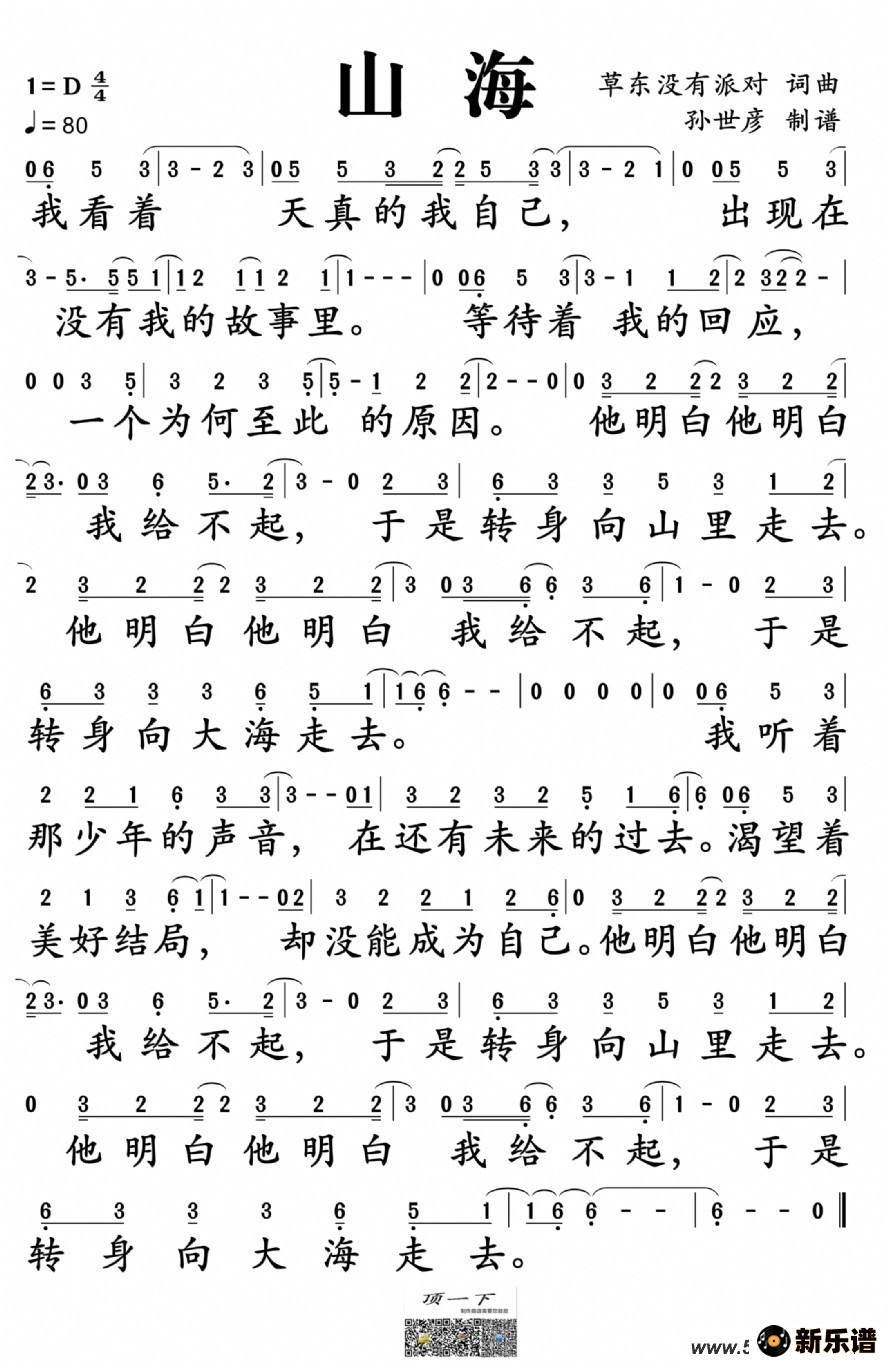 1=D 4/4
山 海
草东没有派对 词曲
♩=80
孙世彦 制谱
06 5 3|3-2 3|05 5 3 2 2 2 5 3 3|3-2 1|0 05 5 3|
我看着 天真的我自己， 出现在
3-5· 5 5 1|1 2 1 1 2 1|1---|0 06 5 3|3-1 1 2|2 3 2 2-|
没有我的故事里。 等待着 我的回应，
0 0 3 5|3 2 3 5|5-1 2 2|2--0|0 3 2 2 2 3 2 2|
一个为何至此 的原因。 他明白他明白
2 3· 0 3 6 5· 2|3-0 2 3|6 3 3 5 3 1 2|
我给不起， 于是转身向山里走去。
2 3 2 2 2 3 2 2|3 0 3 6 6 3 6|1-0 2 3|
他明白他明白 我给不起， 于是
6 3 3 3 6 5 1|1 6 6--|0 0 0 0|0 06 5 3|
转身向大海走去。 我听着
2 2 1 6 3 3|3--0 1|3 2 3 2 5 1 6|6 06 5 3|
那少年的声音， 在还有未来的过去。渴望着
2 1 3 6 1|1--0 2|3 2 2 1 2 6|0 3 2 2 2 3 2 2|
美好结局， 却没能成为自己。他明白他明白
2 3· 0 3 6 5· 2|3-0 2 3|6 3 3 5 3 1 2|
我给不起， 于是转身向山里走去。
0 3 2 2 2 3 2 2|3 0 3 6 6 3 6|1-0 2 3|
他明白他明白 我给不起， 于是
6 3 3 3 6 5 1|1 6 6--|6--0‖
转身向大海走去。
顶一下
制作曲谱需要您鼓鼓
www.5
新乐谱